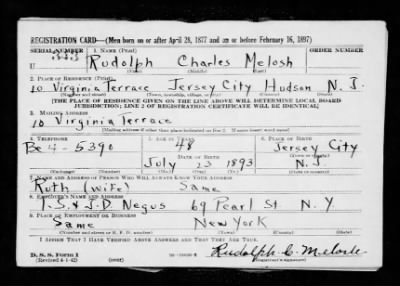 REGISTRATION CARD—(Men born on or after April 28, 1877 and on or before February 16, 1897)
SERIAL NUMBER 1. NAME (Print) ORDER NUMBER
Rudolph Charles Melosh
(First) (Middle) (Last)
2. PLACE OF RESIDENCE (Print)
10 Virginia Terrace Jersey City Hudson N. J.
(Number and street) (Town, township, village, or city) (County) (State)
[THE PLACE OF RESIDENCE GIVEN ON THE LINE ABOVE WILL DETERMINE LOCAL BOARD
JURISDICTION; LINE 2 OF REGISTRATION CERTIFICATE WILL BE IDENTICAL]
3. MAILING ADDRESS
10 Virginia Terrace
[Mailing address if other than place indicated on line 2. If same insert word same]
4. TELEPHONE 5. AGE IN YEARS 6. PLACE OF BIRTH
Be 4-5390 48 Jersey City
DATE OF BIRTH
July 13 1893 N.J.
7. NAME AND ADDRESS OF PERSON WHO WILL ALWAYS KNOW YOUR ADDRESS
Ruth (wife) Same
8. EMPLOYER'S NAME AND ADDRESS
T.S. & J.D. Negus 69 Pearl St. N. Y
9. PLACE OF EMPLOYMENT OR BUSINESS
Same New York
(Number and street or R. F. D. number) (Town) (County) (State)
I AFFIRM THAT I HAVE VERIFIED ABOVE ANSWERS AND THAT THEY ARE TRUE.
D. S. S. Form 1 Rudolph C. Melosh
(Revised 4-1-42) (over) (Registrant's signature)